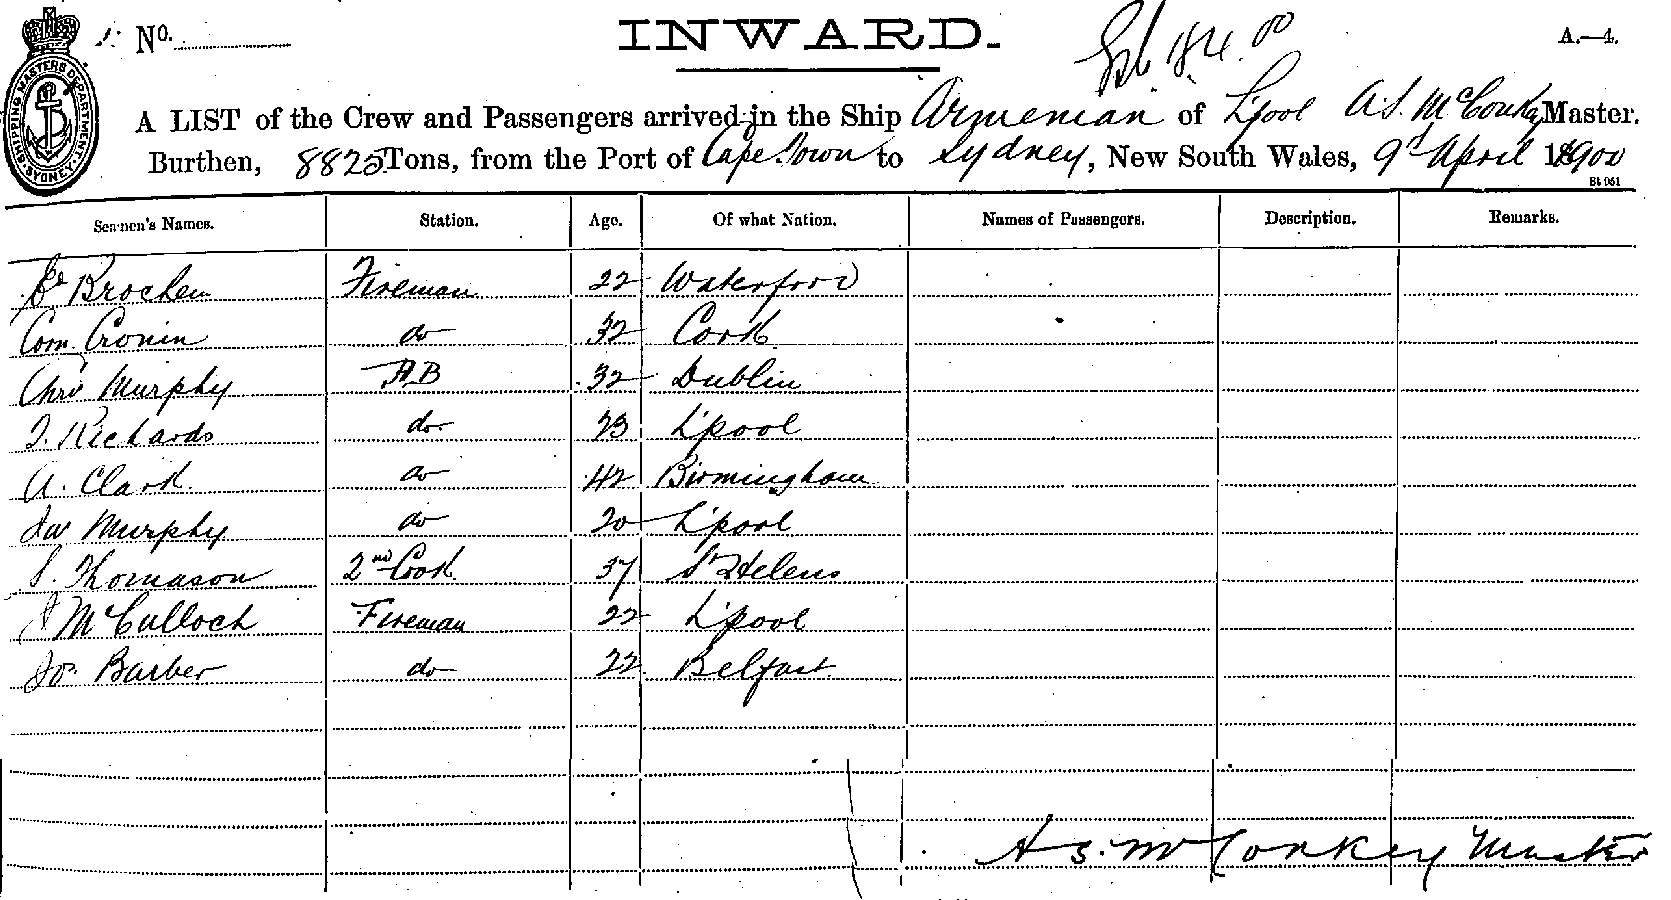 No.
INWARD.
18.4.00
A.—4.
A LIST of the Crew and Passengers arrived in the Ship Armenian of L'pool A.S. McConkey Master.
Burthen, 8825 Tons, from the Port of Cape Town to Sydney, New South Wales, 9th April 1900
SHIPPING MASTERS DEPARTMENT. SYDNEY
Seamen's Names. Station. Age. Of what Nation. Names of Passengers. Description. Remarks.
Brochem Fireman 22 Waterford
Corn. Cronin do 32 Cork
Chris Murphy AB 32 Dublin
Richards do 23 L'pool
A. Clark do 42 Birmingham
Jas Murphy do 20 L'pool
Thomason 2nd Cook 37 St Helens
J McCulloch Fireman 22 L'pool
Jos. Barber do 22 Belfast
A S. McConkey Master